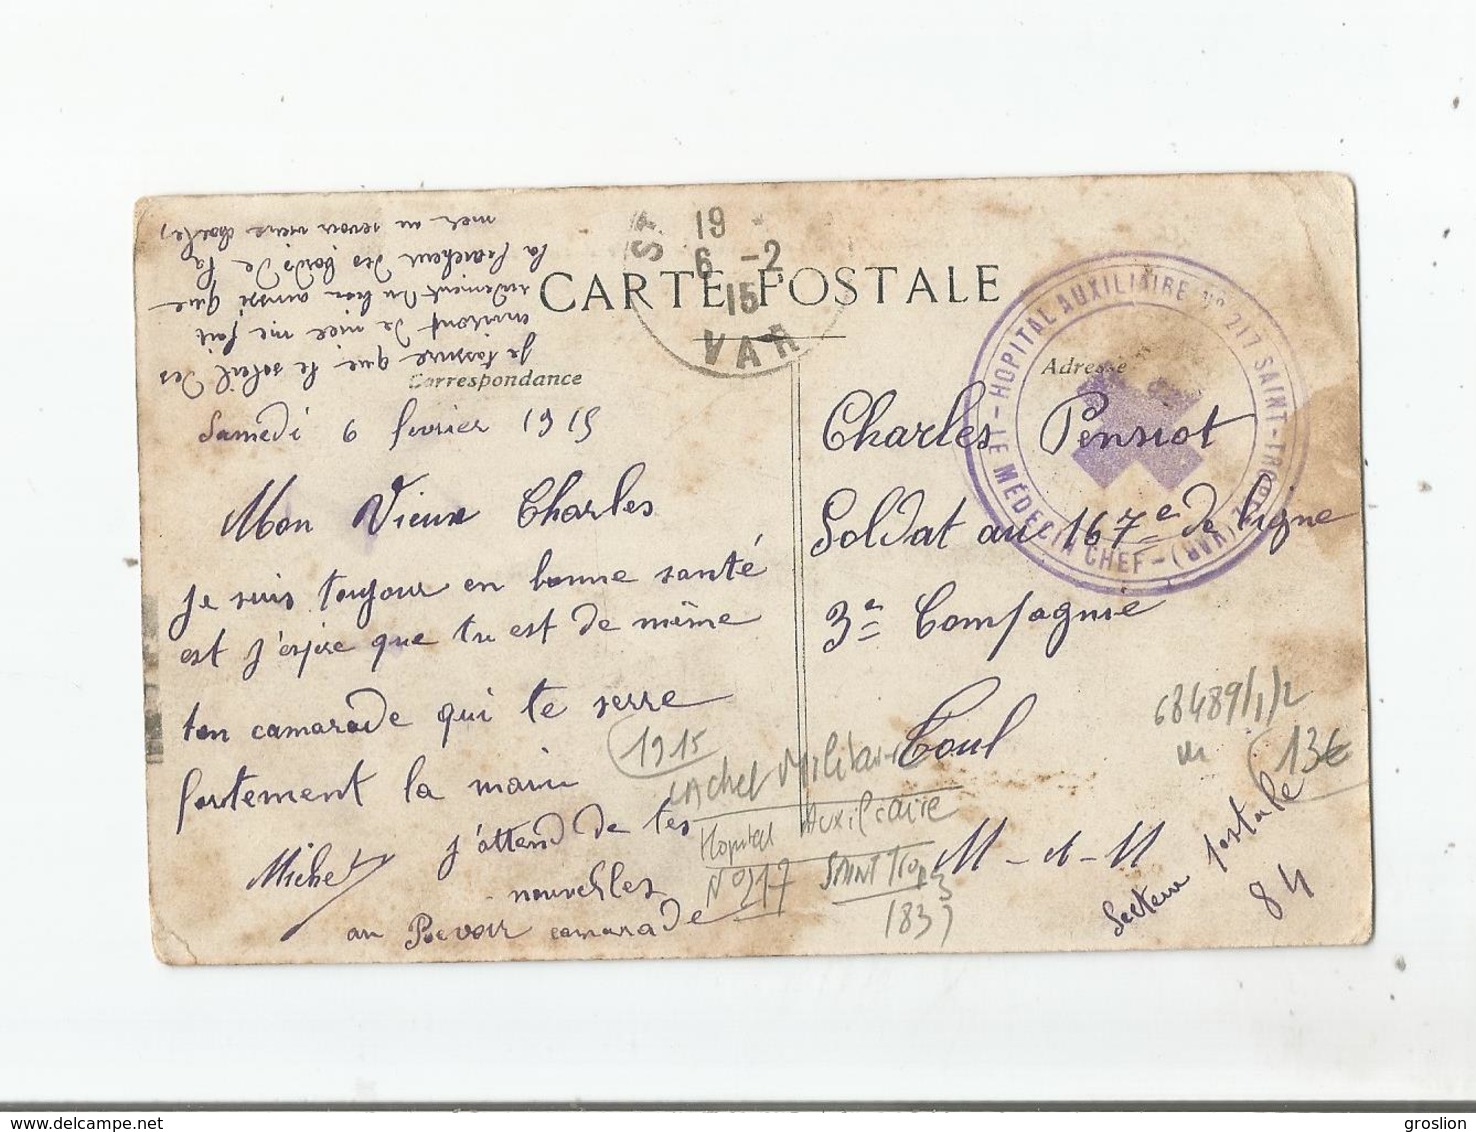 CARTE POSTALE
Correspondance
Adresse
19
6 -2
15
VAR
HOPITAL AUXILIAIRE N° 217 SAINT-TROPEZ (VAR) - LE MÉDECIN CHEF -
Samedi 6 fevrier 1915
Mon Vieux Charles
je suis toujour en bonne santé
est j'espère que tu est de même
ton camarade qui te serre
fortement la main
Michel
j'attend de tes
nouvelles
au Revoir camarade
je tassure que le soleil des
environt de nice me fait
rudement du bien aussi que
la fraicheur des bords de la
mer au revoir vieux charles
Charles Pensiot
Soldat au 167e de ligne
3e Compagnie
Toul
M-et-M
Secteur postale
84
1915
cachet Militaire
Hopital Auxiliaire
N°217 SAINT Tropez
(83)
68489/1/2
13€
groslion